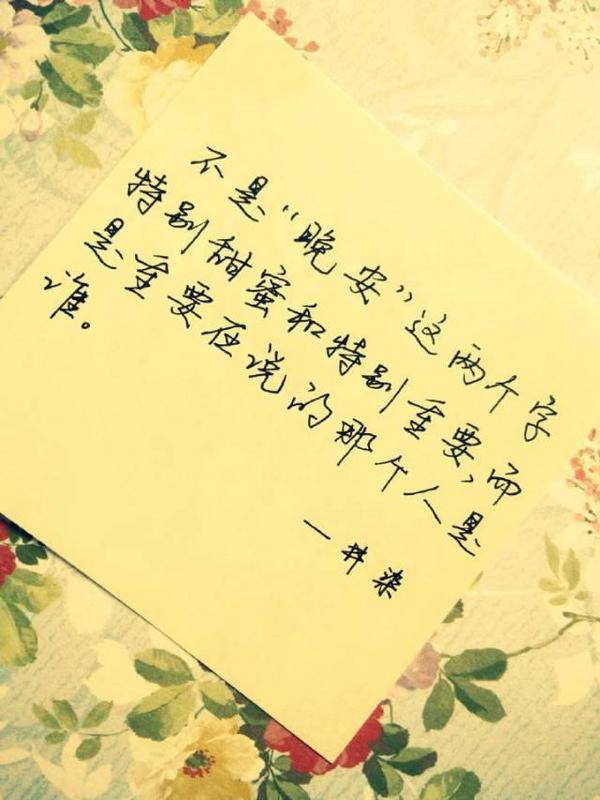 不是“晚安”这两个字
特别甜蜜和特别重要，而
是重要在说的那个人是
谁。
一井染